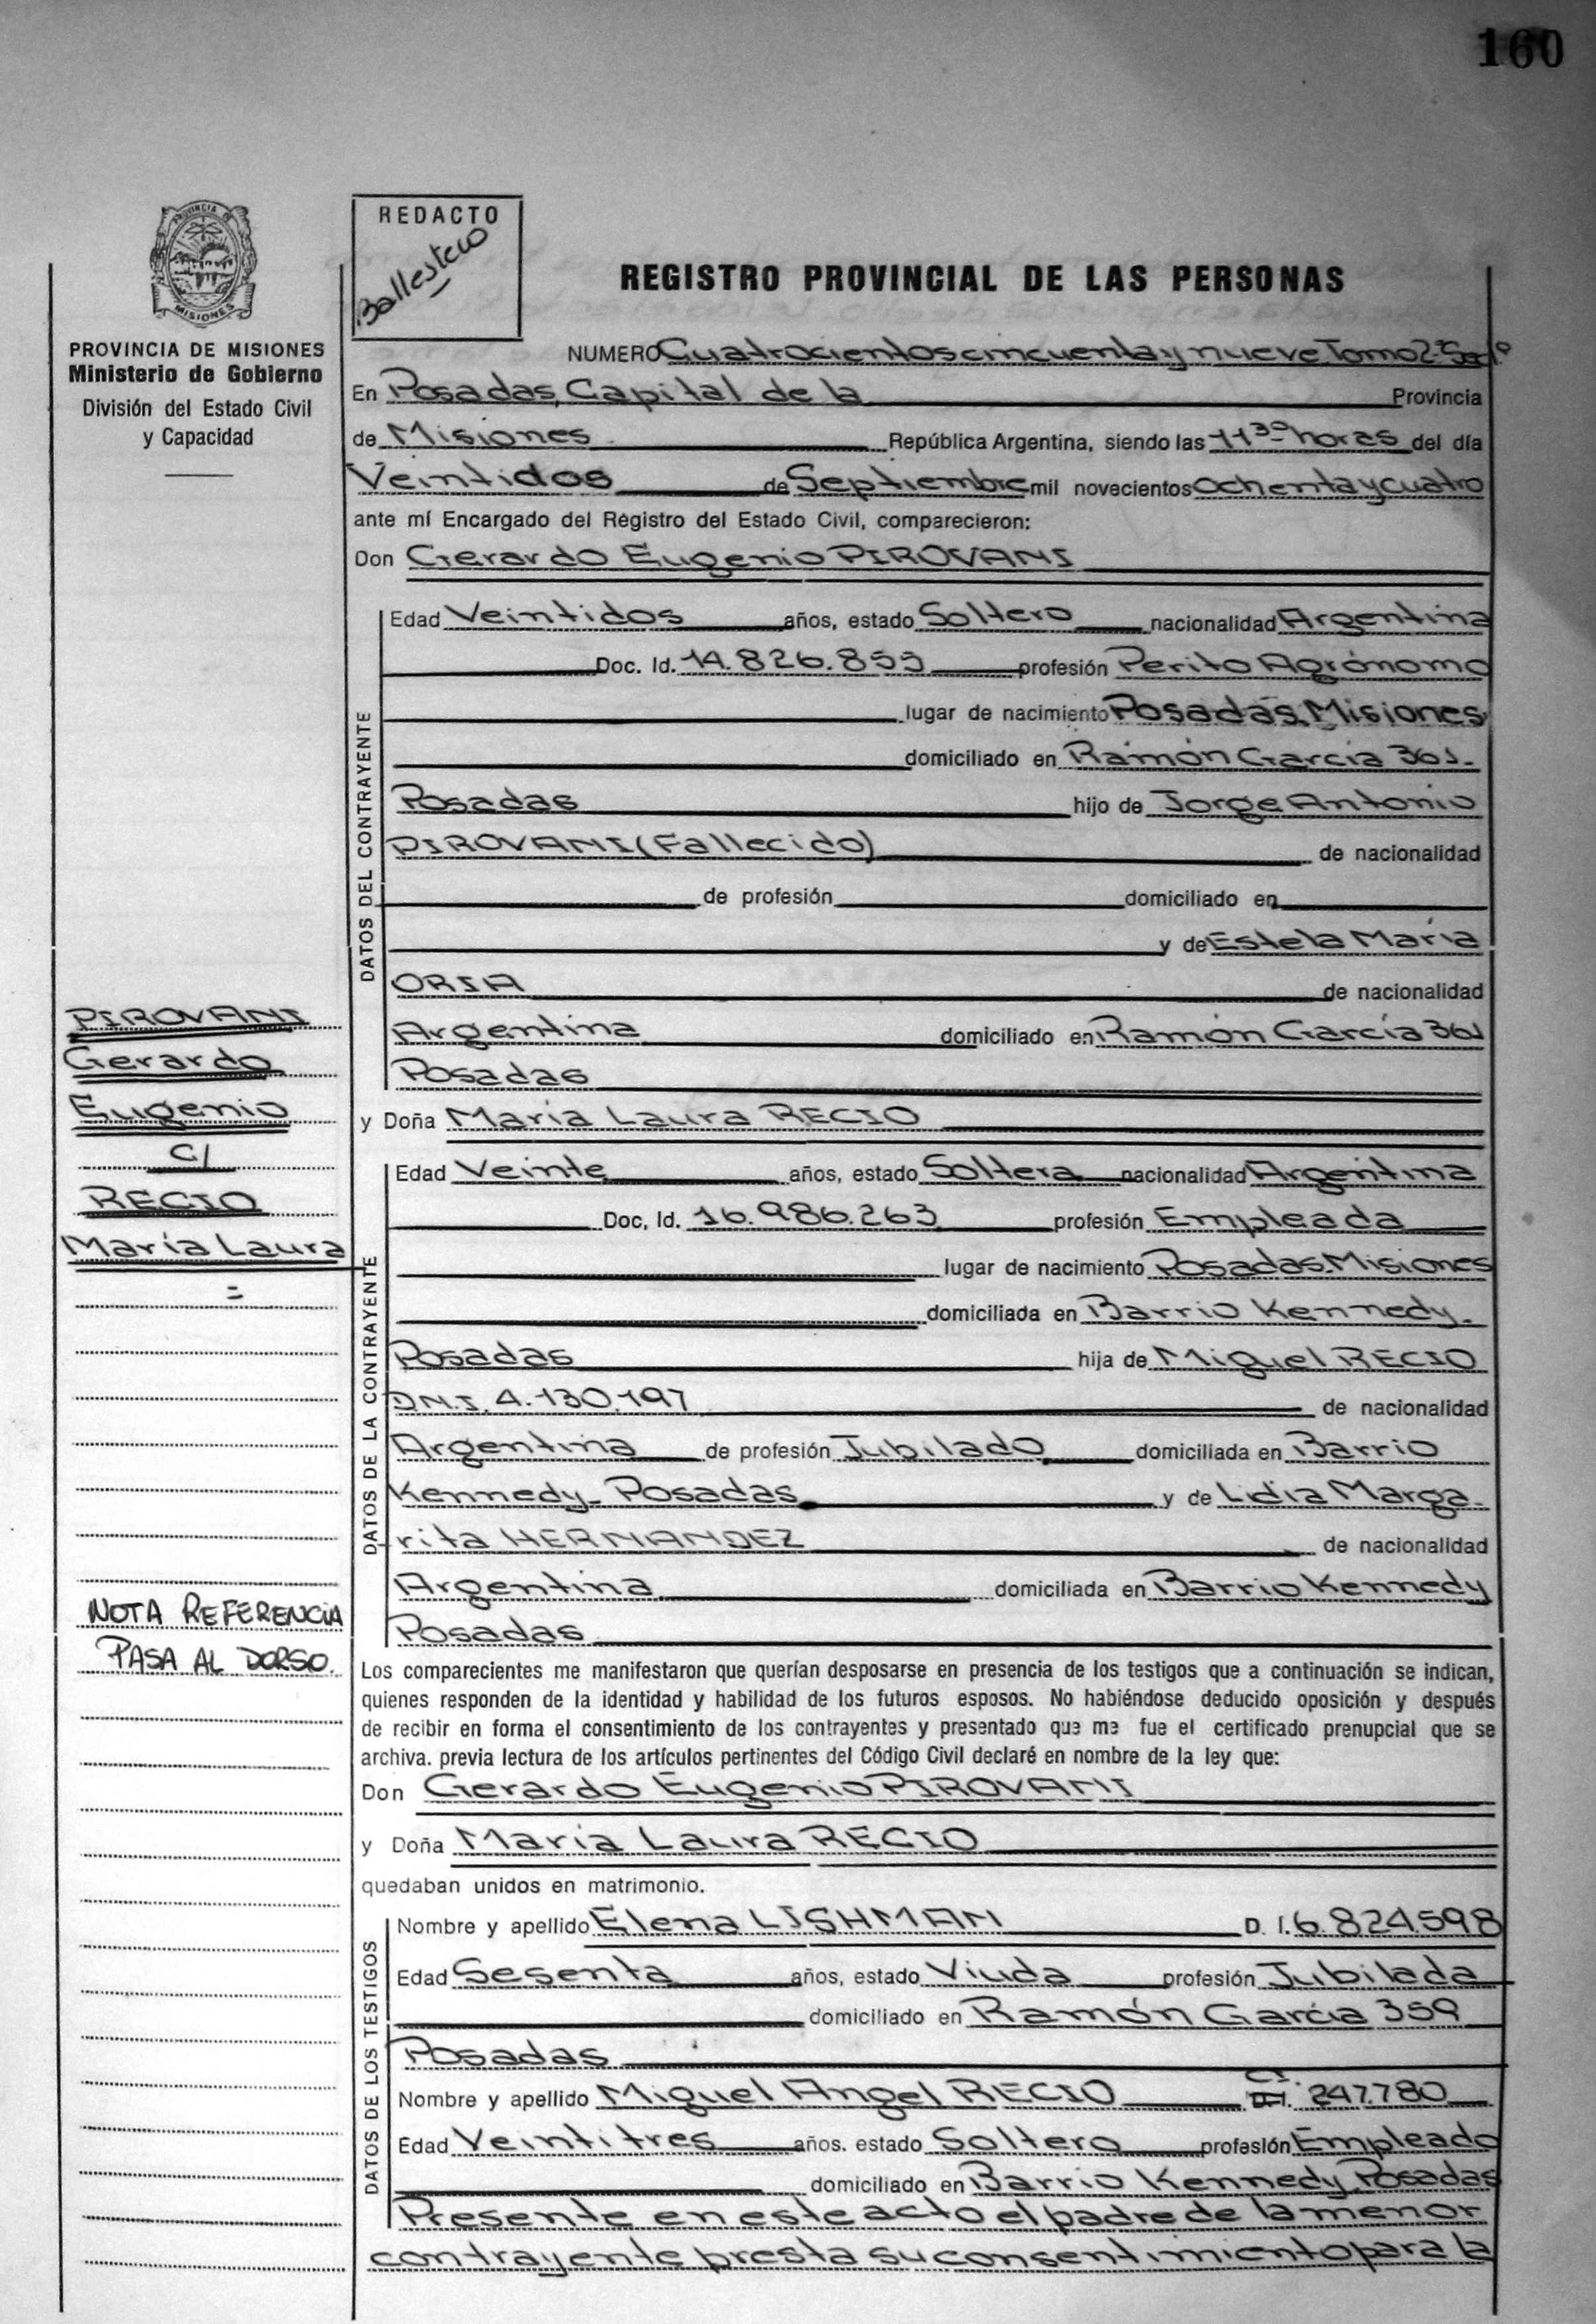 160
PROVINCIA DE
MISIONES
REDACTO
Ballestero
REGISTRO PROVINCIAL DE LAS PERSONAS
PROVINCIA DE MISIONES
Ministerio de Gobierno
División del Estado Civil
y Capacidad
NUMERO Cuatrocientos cincuenta y nueve Tomo 2º Secc 1º
En Posadas, Capital de la Provincia
de Misiones República Argentina, siendo las 11³⁰ horas del día
Veintidos de Septiembre mil novecientos ochenta y cuatro
ante mí Encargado del Registro del Estado Civil, comparecieron:
Don Gerardo Eugenio PIROVANI
DATOS DEL CONTRAYENTE
Edad Veintidos años, estado Soltero nacionalidad Argentina
Doc. Id. 14.826.855 profesión Perito Agrónomo
lugar de nacimiento Posadas, Misiones
domiciliado en Ramón García 361-
Posadas hijo de Jorge Antonio
PIROVANI (Fallecido) de nacionalidad
de profesión domiciliado en
y de Estela María
ORIA de nacionalidad
Argentina domiciliado en Ramón García 361
Posadas
PIROVANI
Gerardo
Eugenio
c/
RECIO
María Laura
=
NOTA REFERENCIA
PASA AL DORSO.
y Doña María Laura RECIO
DATOS DE LA CONTRAYENTE
Edad Veinte años, estado Soltera nacionalidad Argentina
Doc, Id. 16.986.263 profesión Empleada
lugar de nacimiento Posadas Misiones
domiciliada en Barrio Kennedy-
Posadas hija de Miguel RECIO
D.N.I. 4.130.197 de nacionalidad
Argentina de profesión Jubilado domiciliada en Barrio
Kennedy- Posadas y de Lidia Marga-
rita HERNANDEZ de nacionalidad
Argentina domiciliada en Barrio Kennedy
Posadas
Los comparecientes me manifestaron que querían desposarse en presencia de los testigos que a continuación se indican,
quienes responden de la identidad y habilidad de los futuros esposos. No habiéndose deducido oposición y después
de recibir en forma el consentimiento de los contrayentes y presentado que me fue el certificado prenupcial que se
archiva. previa lectura de los artículos pertinentes del Código Civil declaré en nombre de la ley que:
Don Gerardo Eugenio PIROVANI
y Doña María Laura RECIO
quedaban unidos en matrimonio.
DATOS DE LOS TESTIGOS
Nombre y apellido Elena LISHMAN D. I. 6.824.598
Edad Sesenta años, estado Viuda profesión Jubilada
domiciliado en Ramón García 359
Posadas
Nombre y apellido Miguel Angel RECIO C.I. D.I. 247.780
Edad Veintitres años. estado Soltero profesión Empleado
domiciliado en Barrio Kennedy, Posadas
Presente en este acto el padre de la menor
contrayente presta su consentimiento para la